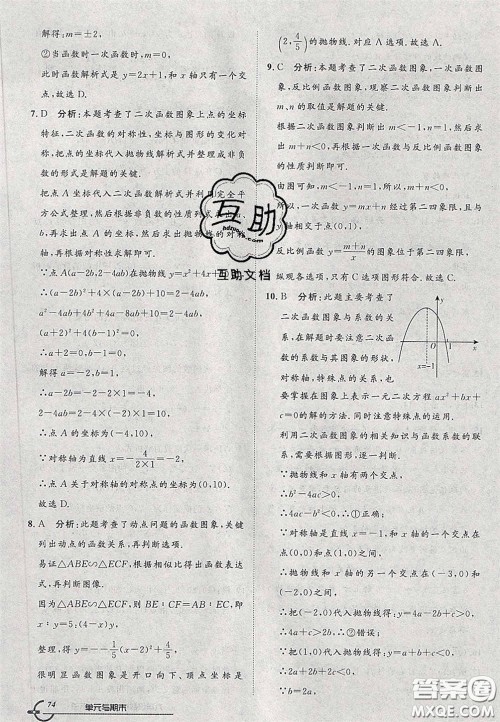 解得：m=±2，
②当函数时一次函数时，m=0，
此时函数解析式是 y=2x+1，和 x 轴只有一个交
点，故选 D.
7. D 分析：本题考查了二次函数图象上点的坐标
特征，二次函数的对称性，坐标与图形的变化对
称，把点的坐标代入抛物线解析式并整理成非负
数的形式是解题的关键.
把点 A 坐标代入二次函数解析式并利用完全平
方公式整理，
a，再求出点 A 的坐标，
轴，然后求解即可.
∵点 A(a-2b,2-4ab)在抛物线 y=x²+4x+
a²-4ab+4b²+4a-8b+10=2-4ab,
(a+2)²+4(b-1)²=0,
∴a+2=0,b-1=0,
解得 a=-2,b=1,
∴a-2b=-2-2×1=-4,
2-4ab=2-4×(-2)×1=10,
∴点 A 的坐标为(-4,10),
∵对称轴为直线 x=-4/(2×1)=-2,
∴点 A 关于对称轴的对称点的坐标为(0,10).
故选 D.
8. A 分析：此题考查了动点问题的函数图象，关键
列出动点的函数关系，再判断选项.
易证△ABE∽△ECF，根据相似比得出函数表达
式，再判断图像.
因为△ABE∽△ECF，则 BE∶CF=AB∶EC，即
x∶y=5∶(4-x),
整理，得 y=-1/5(x-2)²+4/5,
很明显函数图象是开口向下、顶点坐标是
74 单元与期末
(2,4/5)的抛物线. 对应 A 选项. 故选 A.
9. C 分析：本题考查了二次函数图象，一次函数图
象，反比例函数图象，观察二次函数图象判断出
m,n 的取值是解题的关键.
根据二次函数图象判断出 m<0,n<0,
数与反比例函数图象的性质判断即可.
由图可知，m<0,n<0,
∴m+n<0,
∴一次函数 y=mx+n 经过第二四象限，且与 y
轴相交于点(0,n),
反比例函数 y=(m+n)/x 的图象位于第二四象限，
纵观各选项，只有 C 选项图形符合. 故选 C.
10. B 分析：此题主要考查了
二次函数图象与系数的关
系，在解题时要注意二次函
数的系数与其图象的形状，
对称轴，特殊点的关系，也
要掌握在图象上表示一元二次方程 ax²+bx+
c=0 的解的方法. 同时注意特殊点的运用.
利用二次函数图象的相关知识与函数系数的联
系，需要根据图形，逐一判断.
∵抛物线与 x 轴有两个交点，
∴b²-4ac>0,
∴①4ac-b²<0 正确；
∵对称轴是直线 x=-1，和 x 轴的一个交点在
点(0,0)和点(1,0)之间，
∴抛物线和 x 轴的另一个交点在(-3,0)和
(-2,0)之间，
∴把(-2,0)代入抛物线得：y=4a-2b+c>0,
∴4a+c>2b，∴②错误；
∵把(1,0)代入抛物线得：y=a+b+c<0,
∴2a+2b+2c<0,
∵b=2a,
x=-1
O
x
y
互助
互助文档
答案圈
MXQE.COM